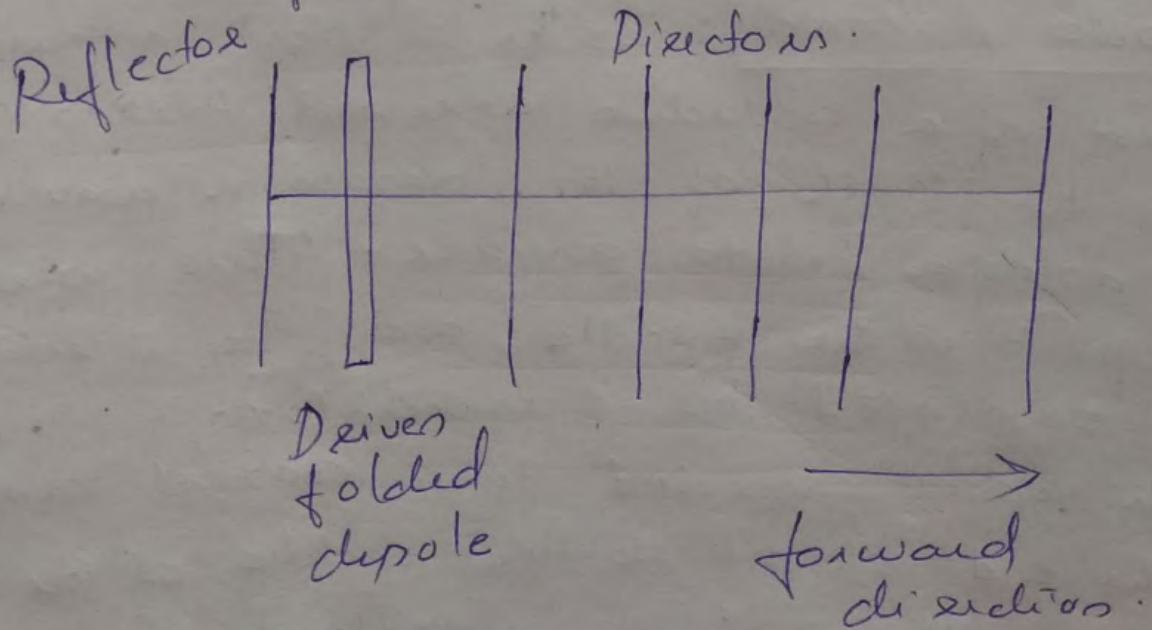 Reflector
Directors.
Driven
folded
dipole
forward
direction.